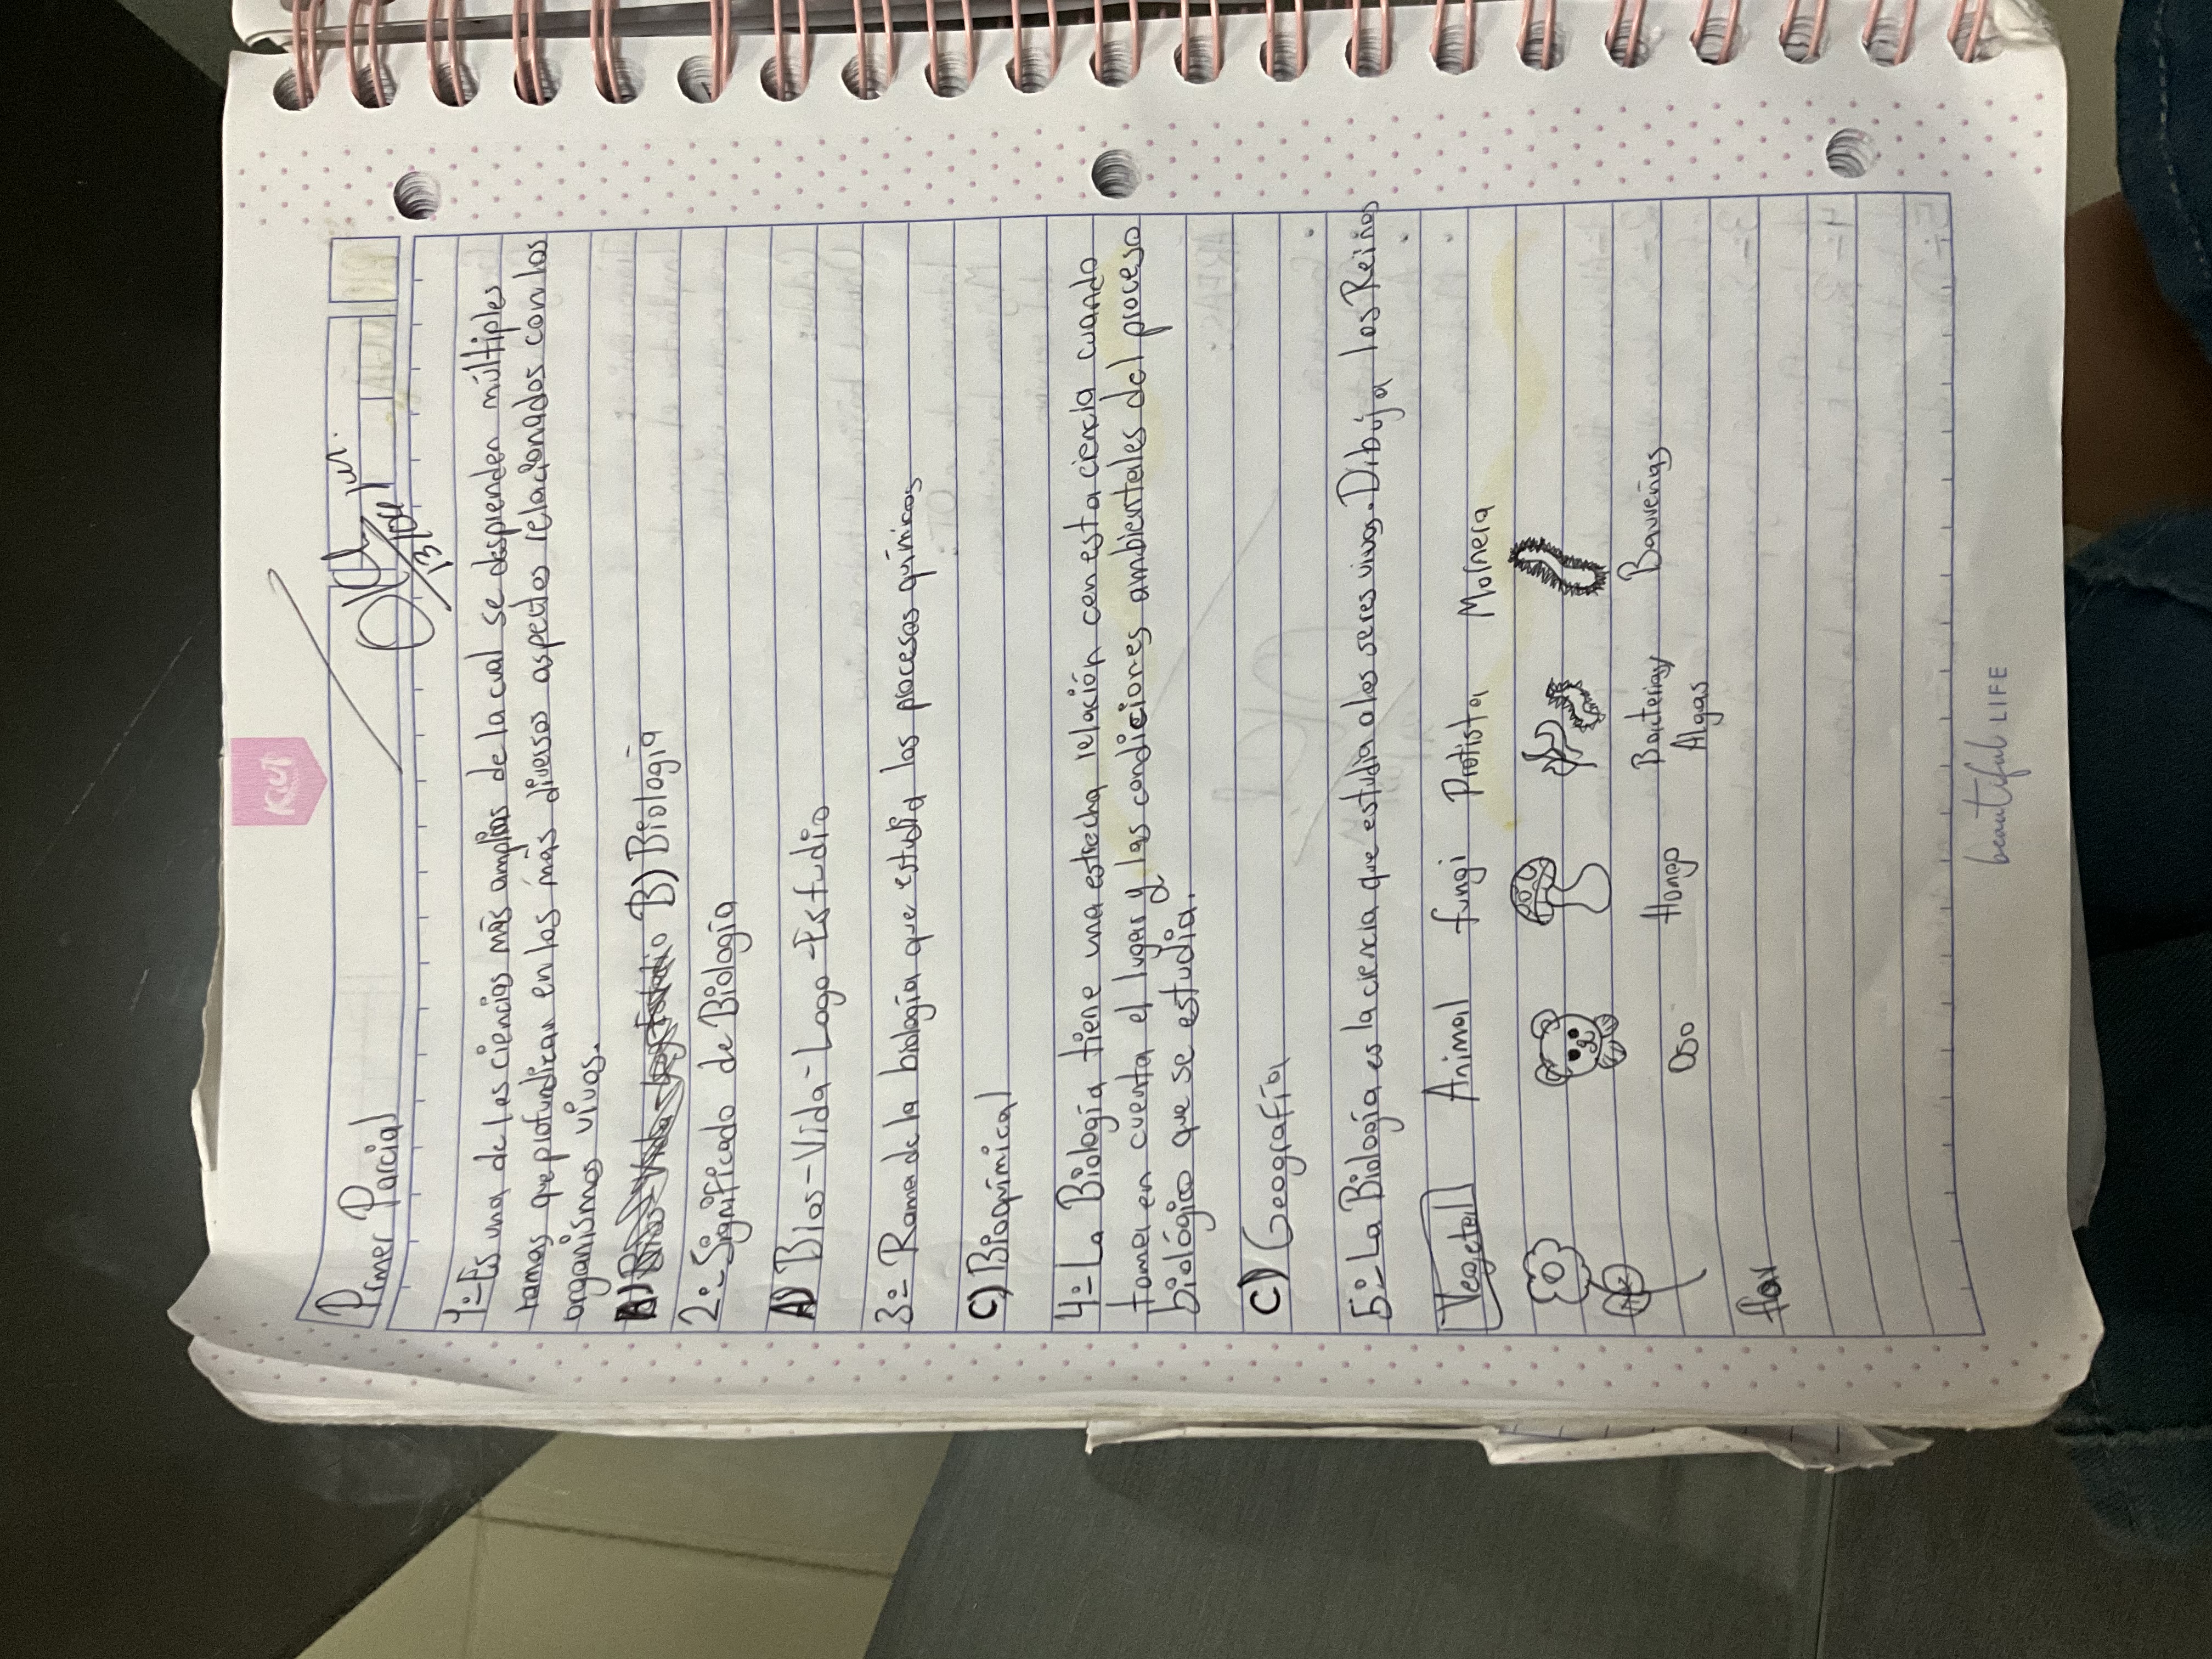 KUT
Primer Parcial
13/oct
1:-Es una de las ciencias más amplias de la cual se desprenden múltiples
ramas que profundizan en los más diversos aspectos relacionados con los
organismos vivos.
B) Biología
2:- Significado de Biología
A) Bios-Vida-Logo-Estudio
3:- Rama de la biología que estudia los procesos químicos
C) Bioquímical
4:- La Biología tiene una estrecha relación con esta ciencia cuando
toma en cuenta el lugar y las condiciones ambientales del proceso
biológico que se estudia.
C) Geografía
5:- La Biología es la ciencia que estudia a los seres vivos. Dibuja los Reinos
Vegetal Animal fungi Protista Molnera
flor Oso Hongo Bacterias y
Algas
beautiful LIFE